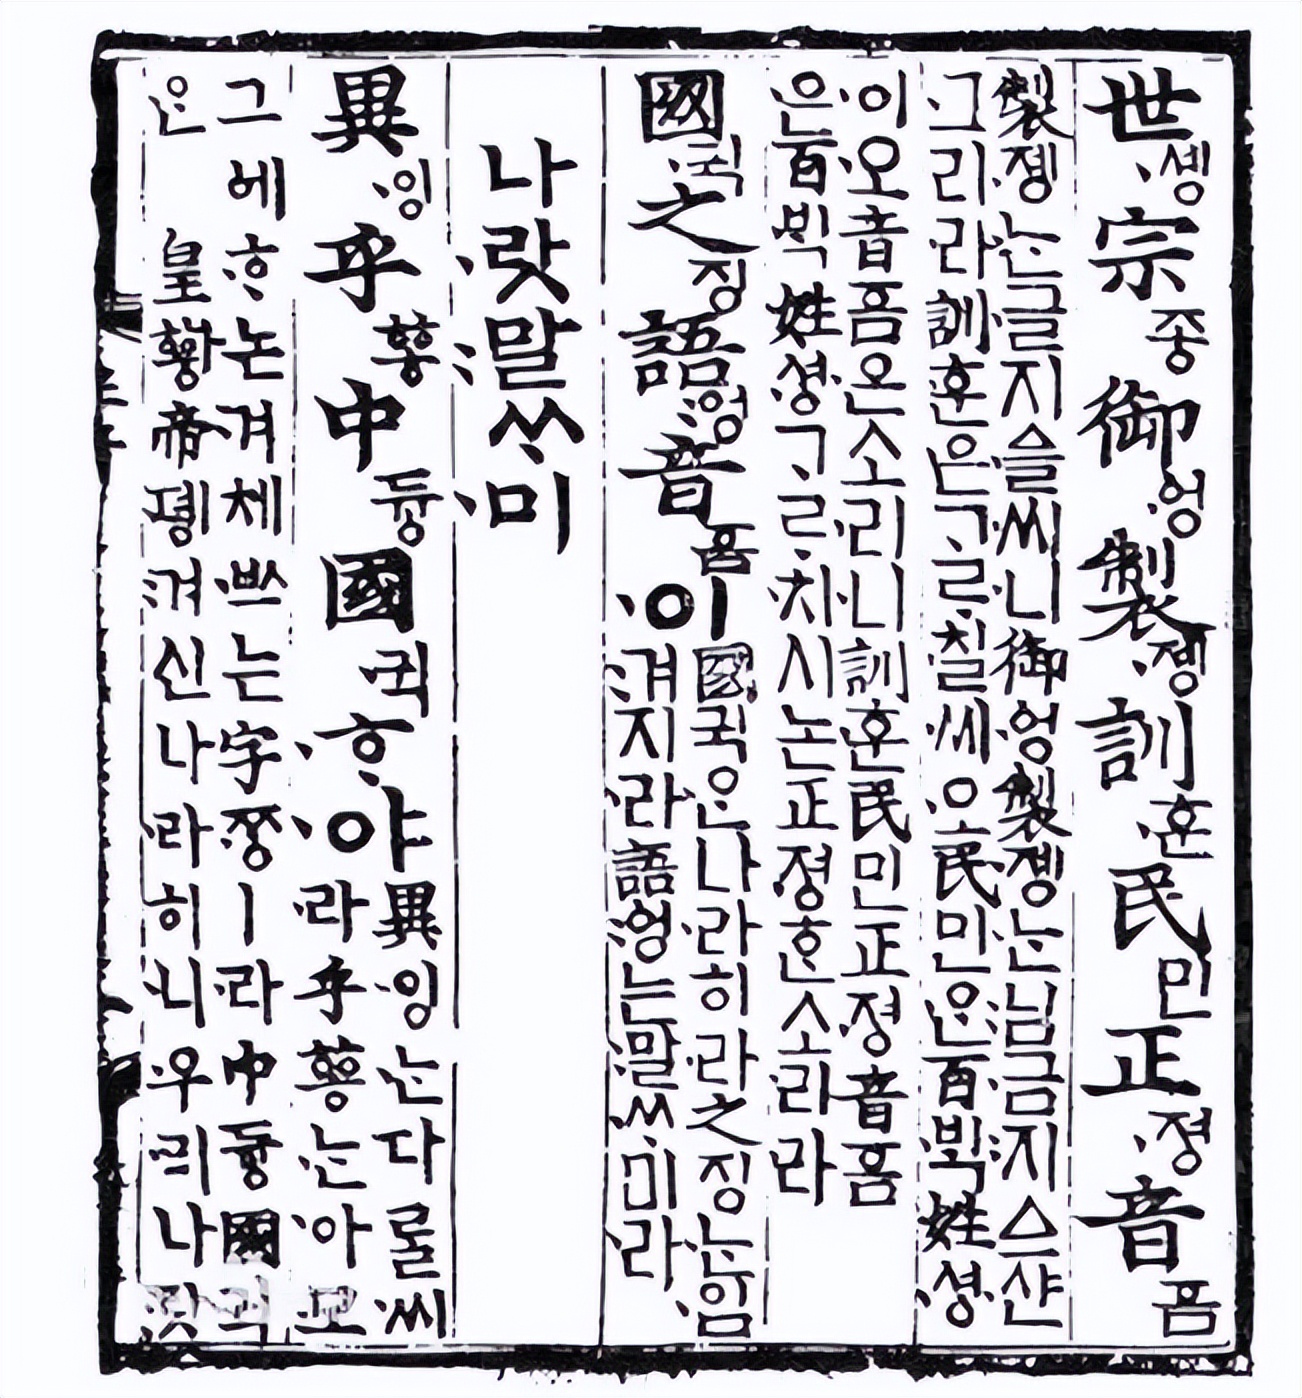 世·솅宗종御·엉製·졩訓·훈民민正·졍音ᅙᅳᆷ
製·졩·ᄂᆞᆫ·글지·ᅀᅳᆯ·씨·니御·엉製·졩·ᄂᆞᆫ:님·금:지·ᅀᅳ샨
·그·리·라訓·훈·은ᄀᆞᄅᆞ·칠·씨·오民민·ᄋᆞᆫ百·ᄇᆡᆨ姓·셩
·이·오音ᅙᅳᆷ·은소·리·니訓·훈民민正·졍音ᅙᅳᆷ
·은百·ᄇᆡᆨ姓·셩ᄀᆞᄅᆞ·치시·논正·졍ᄒᆞᆫ소·리·라
國·귁之징語:엉音ᅙᅳᆷ·이
國·귁·ᄋᆞᆫ나·라히·라之징·ᄂᆞᆫ입
·겨지·라語:엉·는:말ᄊᆞ·미·라
나·랏:말ᄊᆞ·미
異·잉乎ᅘᅩᆼ中듕國·귁·ᄒᆞ·야
異·잉·ᄂᆞᆫ다ᄅᆞᆯ·씨
·라乎ᅘᅩᆼ·ᄂᆞᆫ:아:모
그ᅌᅦ·ᄒᆞ논·겨체·ᄡᅳ는字·ᄍᆞᆼㅣ·라中듕國·귁
·ᄋᆞᆫ皇ᅘᅪᆼ帝·뎽:겨신나·라히·니우·리나·랏